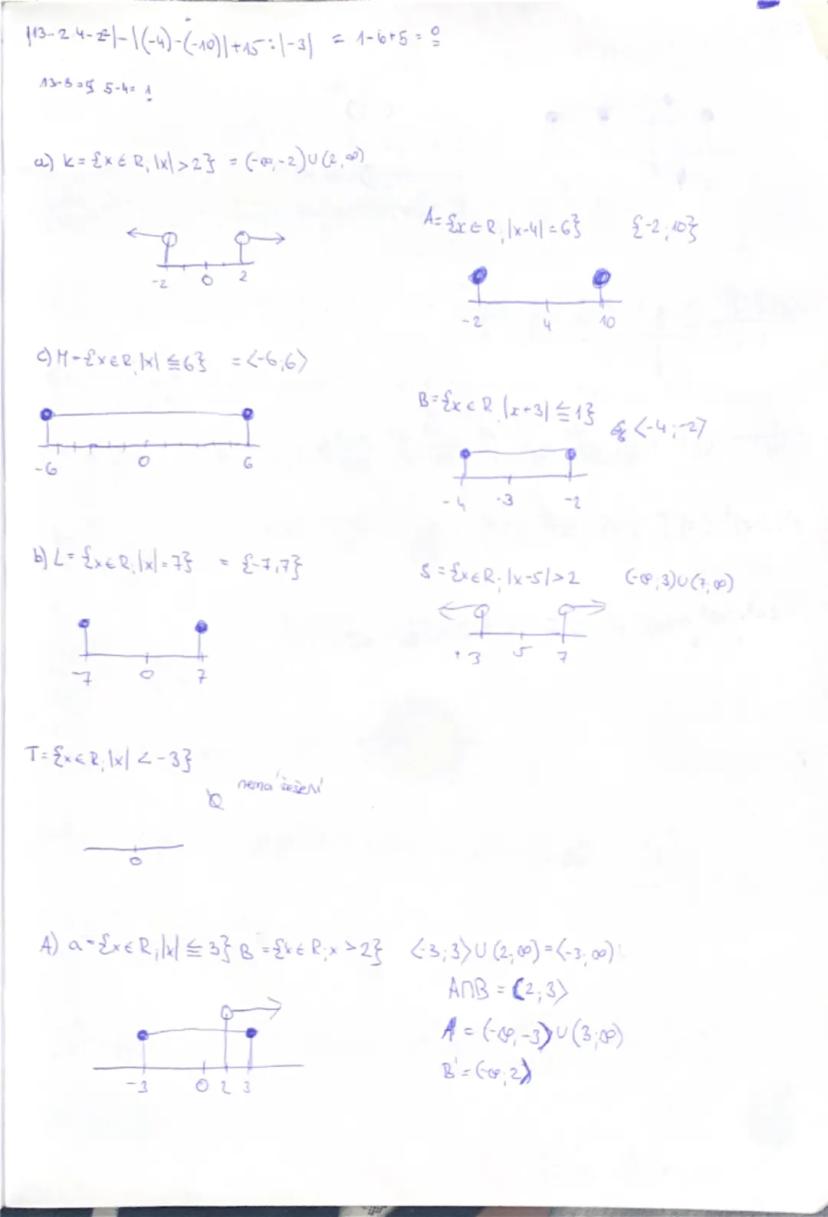 |13-2·4-2²|-|(-4)-(-10)|+15:|-3| = 1-6+5 = 0
13-8=5 5-4= 1
a) K={x∈R, |x|>2} = (-∞,-2)∪(2,∞)
-2 0 2
A={x∈R, |x-4|=6} {-2;10}
-2 4 10
c) M={x∈R, |x|≦6} = <-6,6>
-6 0 6
B={x∈R, |x+3|≦1} <-4;-2>
-4 -3 -2
b) L={x∈R, |x|=7} = {-7,7}
-7 0 7
S={x∈R; |x-5|>2 (-∞,3)∪(7,∞)
+3 5 7
T={x∈R, |x| < -3}
nemá řešení
0
A) a={x∈R, |x|≦3} B={x∈R; x>2} <-3;3>∪(2;∞)=<-3;∞)
A∩B = (2;3>
A = (-∞,-3)∪(3;∞)
B'=(-∞,2>
-3 0 2 3